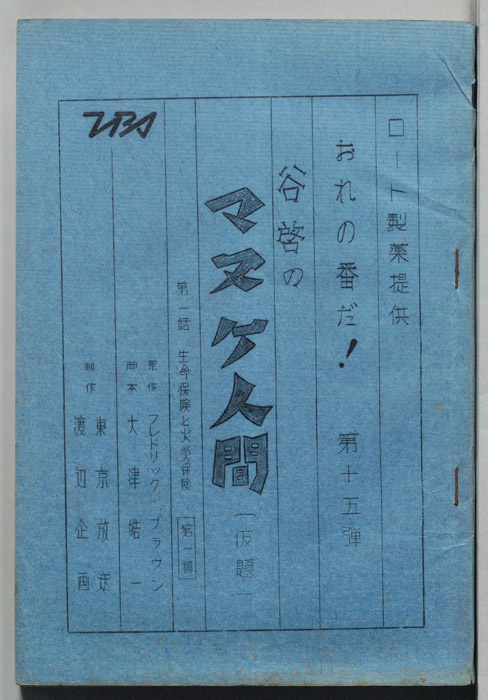 ロート製薬提供
おれの番だ! 第十五弾
谷啓の
マヌケ人間(仮題)
第一話 生命保険と火災保険 第一稿
原作 フレドリック・ブラウン
脚本 大津皓一
制作 東京放送
渡辺企画
TBS